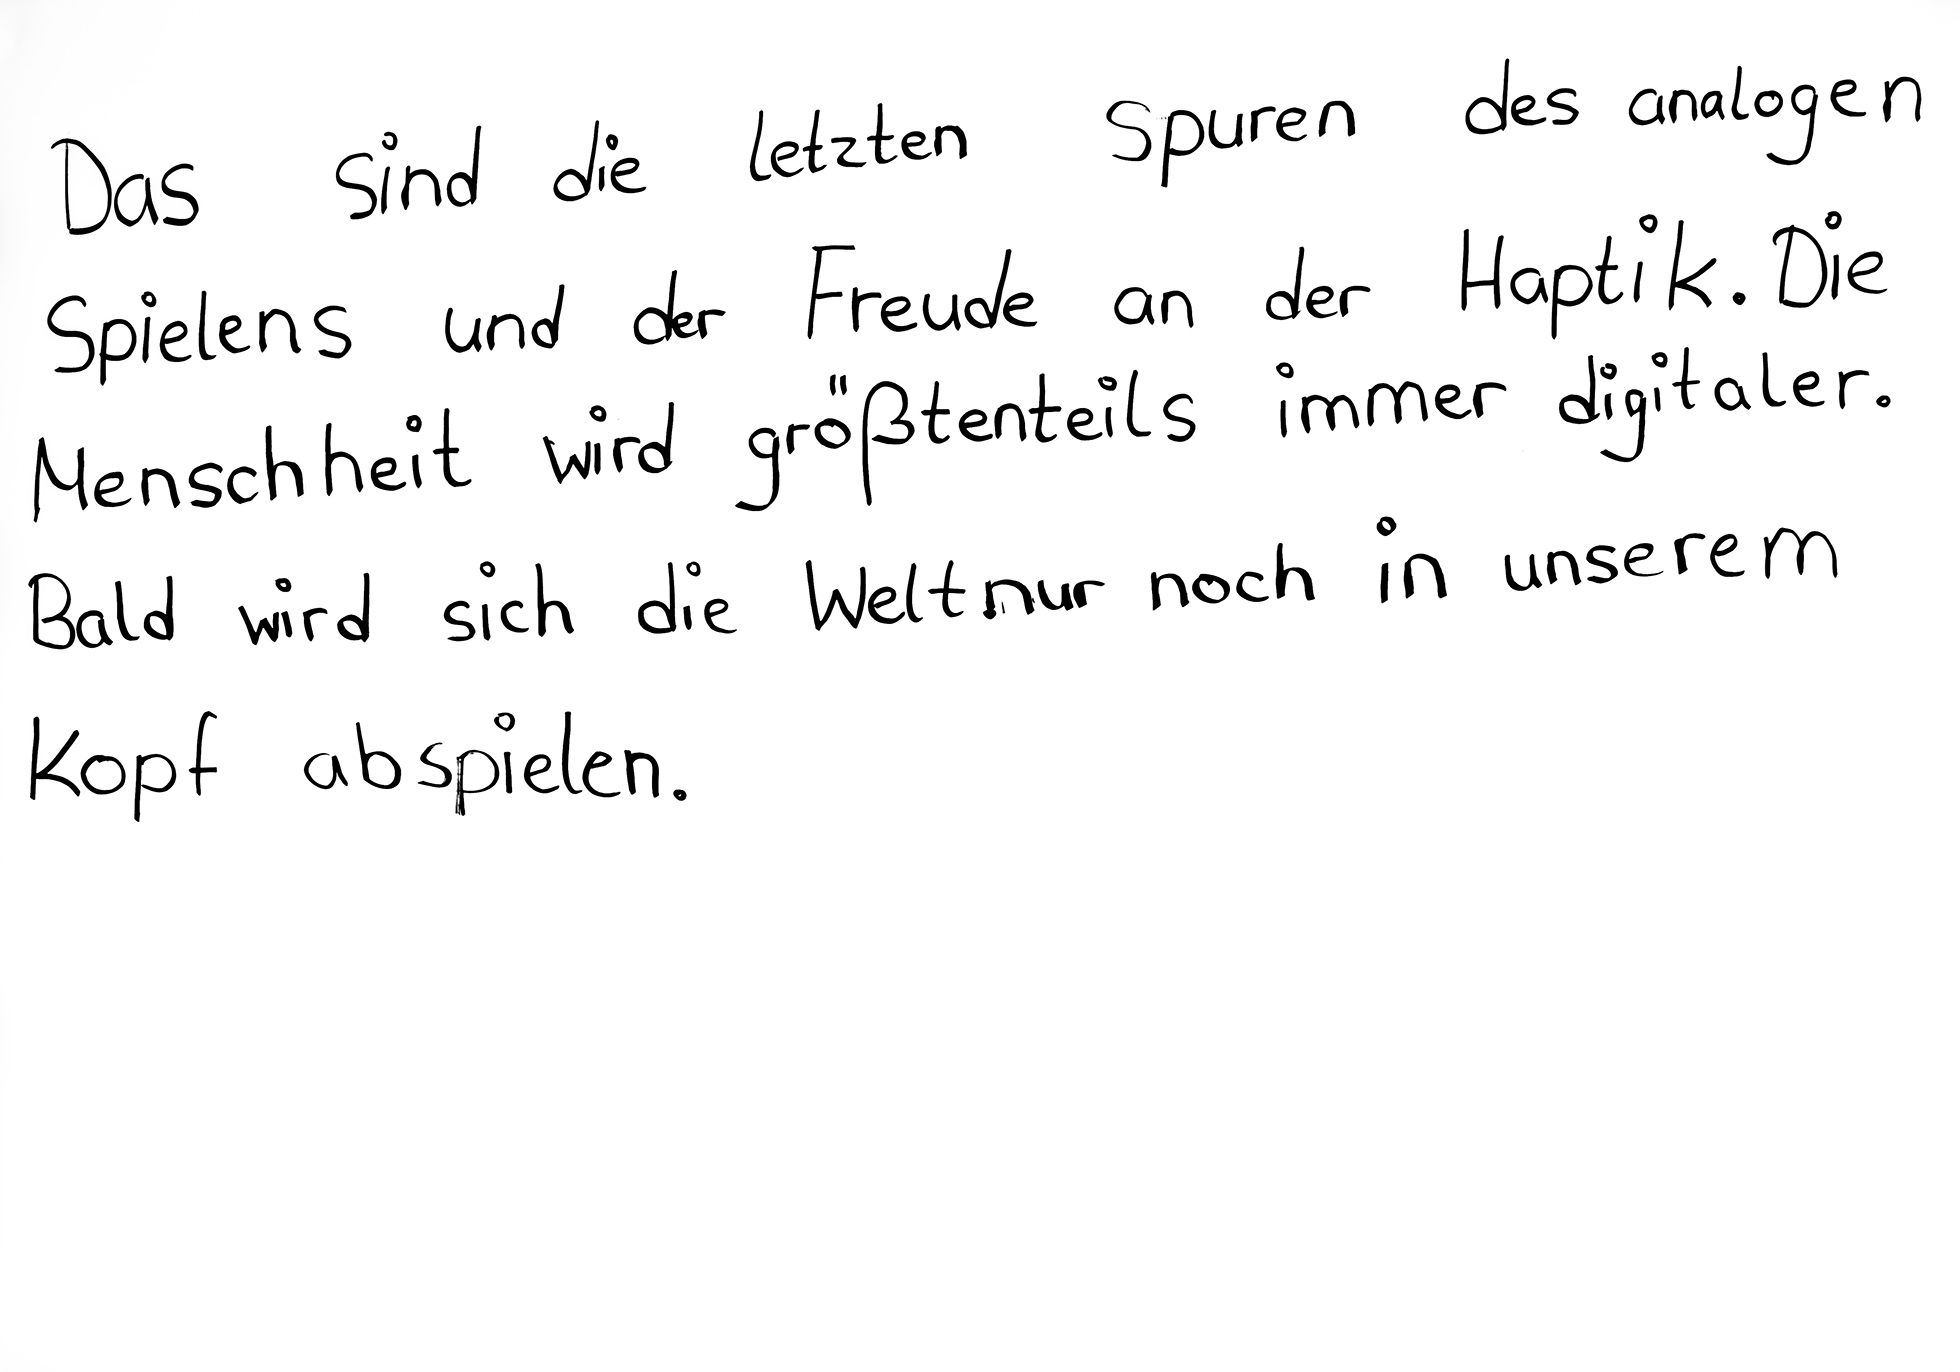 Das sind die letzten Spuren des analogen
Spielens und der Freude an der Haptik. Die
Menschheit wird größtenteils immer digitaler.
Bald wird sich die Welt nur noch in unserem
Kopf abspielen.